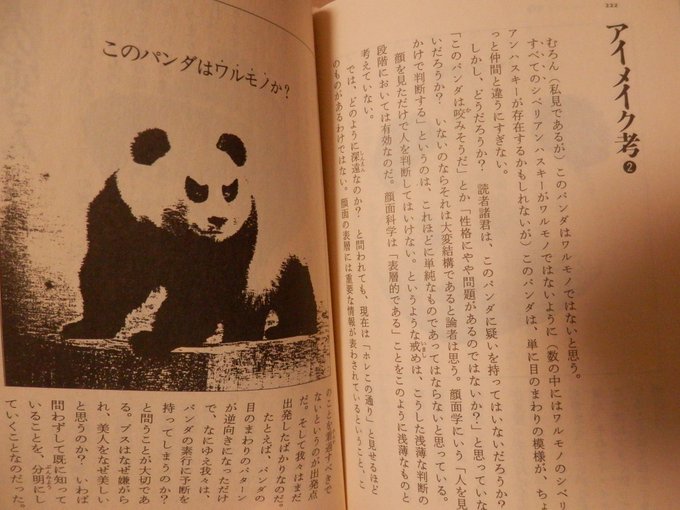 222
アイメイク考❷
むろん(私見であるが)このパンダはワルモノではないと思う。
すべてのシベリアンハスキーがワルモノではないように(数の中にはワルモノのシベリ
アンハスキーが存在するかもしれないが)このパンダは、単に目のまわりの模様が、ちょ
っと仲間と違うにすぎない。
しかし、どうだろうか? 読者諸君は、このパンダに疑いを持ってはいないだろうか?
「このパンダは咬みそうだ」とか「性格にやや問題があるのではないか?」と思っていな
いだろうか? いないのならそれは大変結構であると論者は思う。顔面学にいう「人を見
かけで判断する」というのは、これほどに単純なものであってはならないと思っている。
顔を見ただけで人を判断してはいけない。というような戒めは、こうした浅薄な判断の
段階においては有効なのだ。顔面科学は「表層的である」ことをこのように浅薄なものと
考えていない。
では、どのように深遠なのか? と問われても、現在は「ホレこの通り」と見せるほど
のものがあるわけではない。顔面の表層には重要な情報が表わされているということ、こ
このパンダはワルモノか?
のことを看過すべきで
ないというのが出発点
だ。そして我々はまだ
出発したばかりなのだ。
たとえば、パンダの
目のまわりのパターン
が逆向きになっただけ
で、なにゆえ我々は、
パンダの素行に予断を
持ってしまうのか?
と問うことが大切であ
る。ブスはなぜ嫌がら
れ、美人をなぜ美しい
と思うのか? いわば
問わずして既に知って
いることを、分明にし
ていくことなのだった。